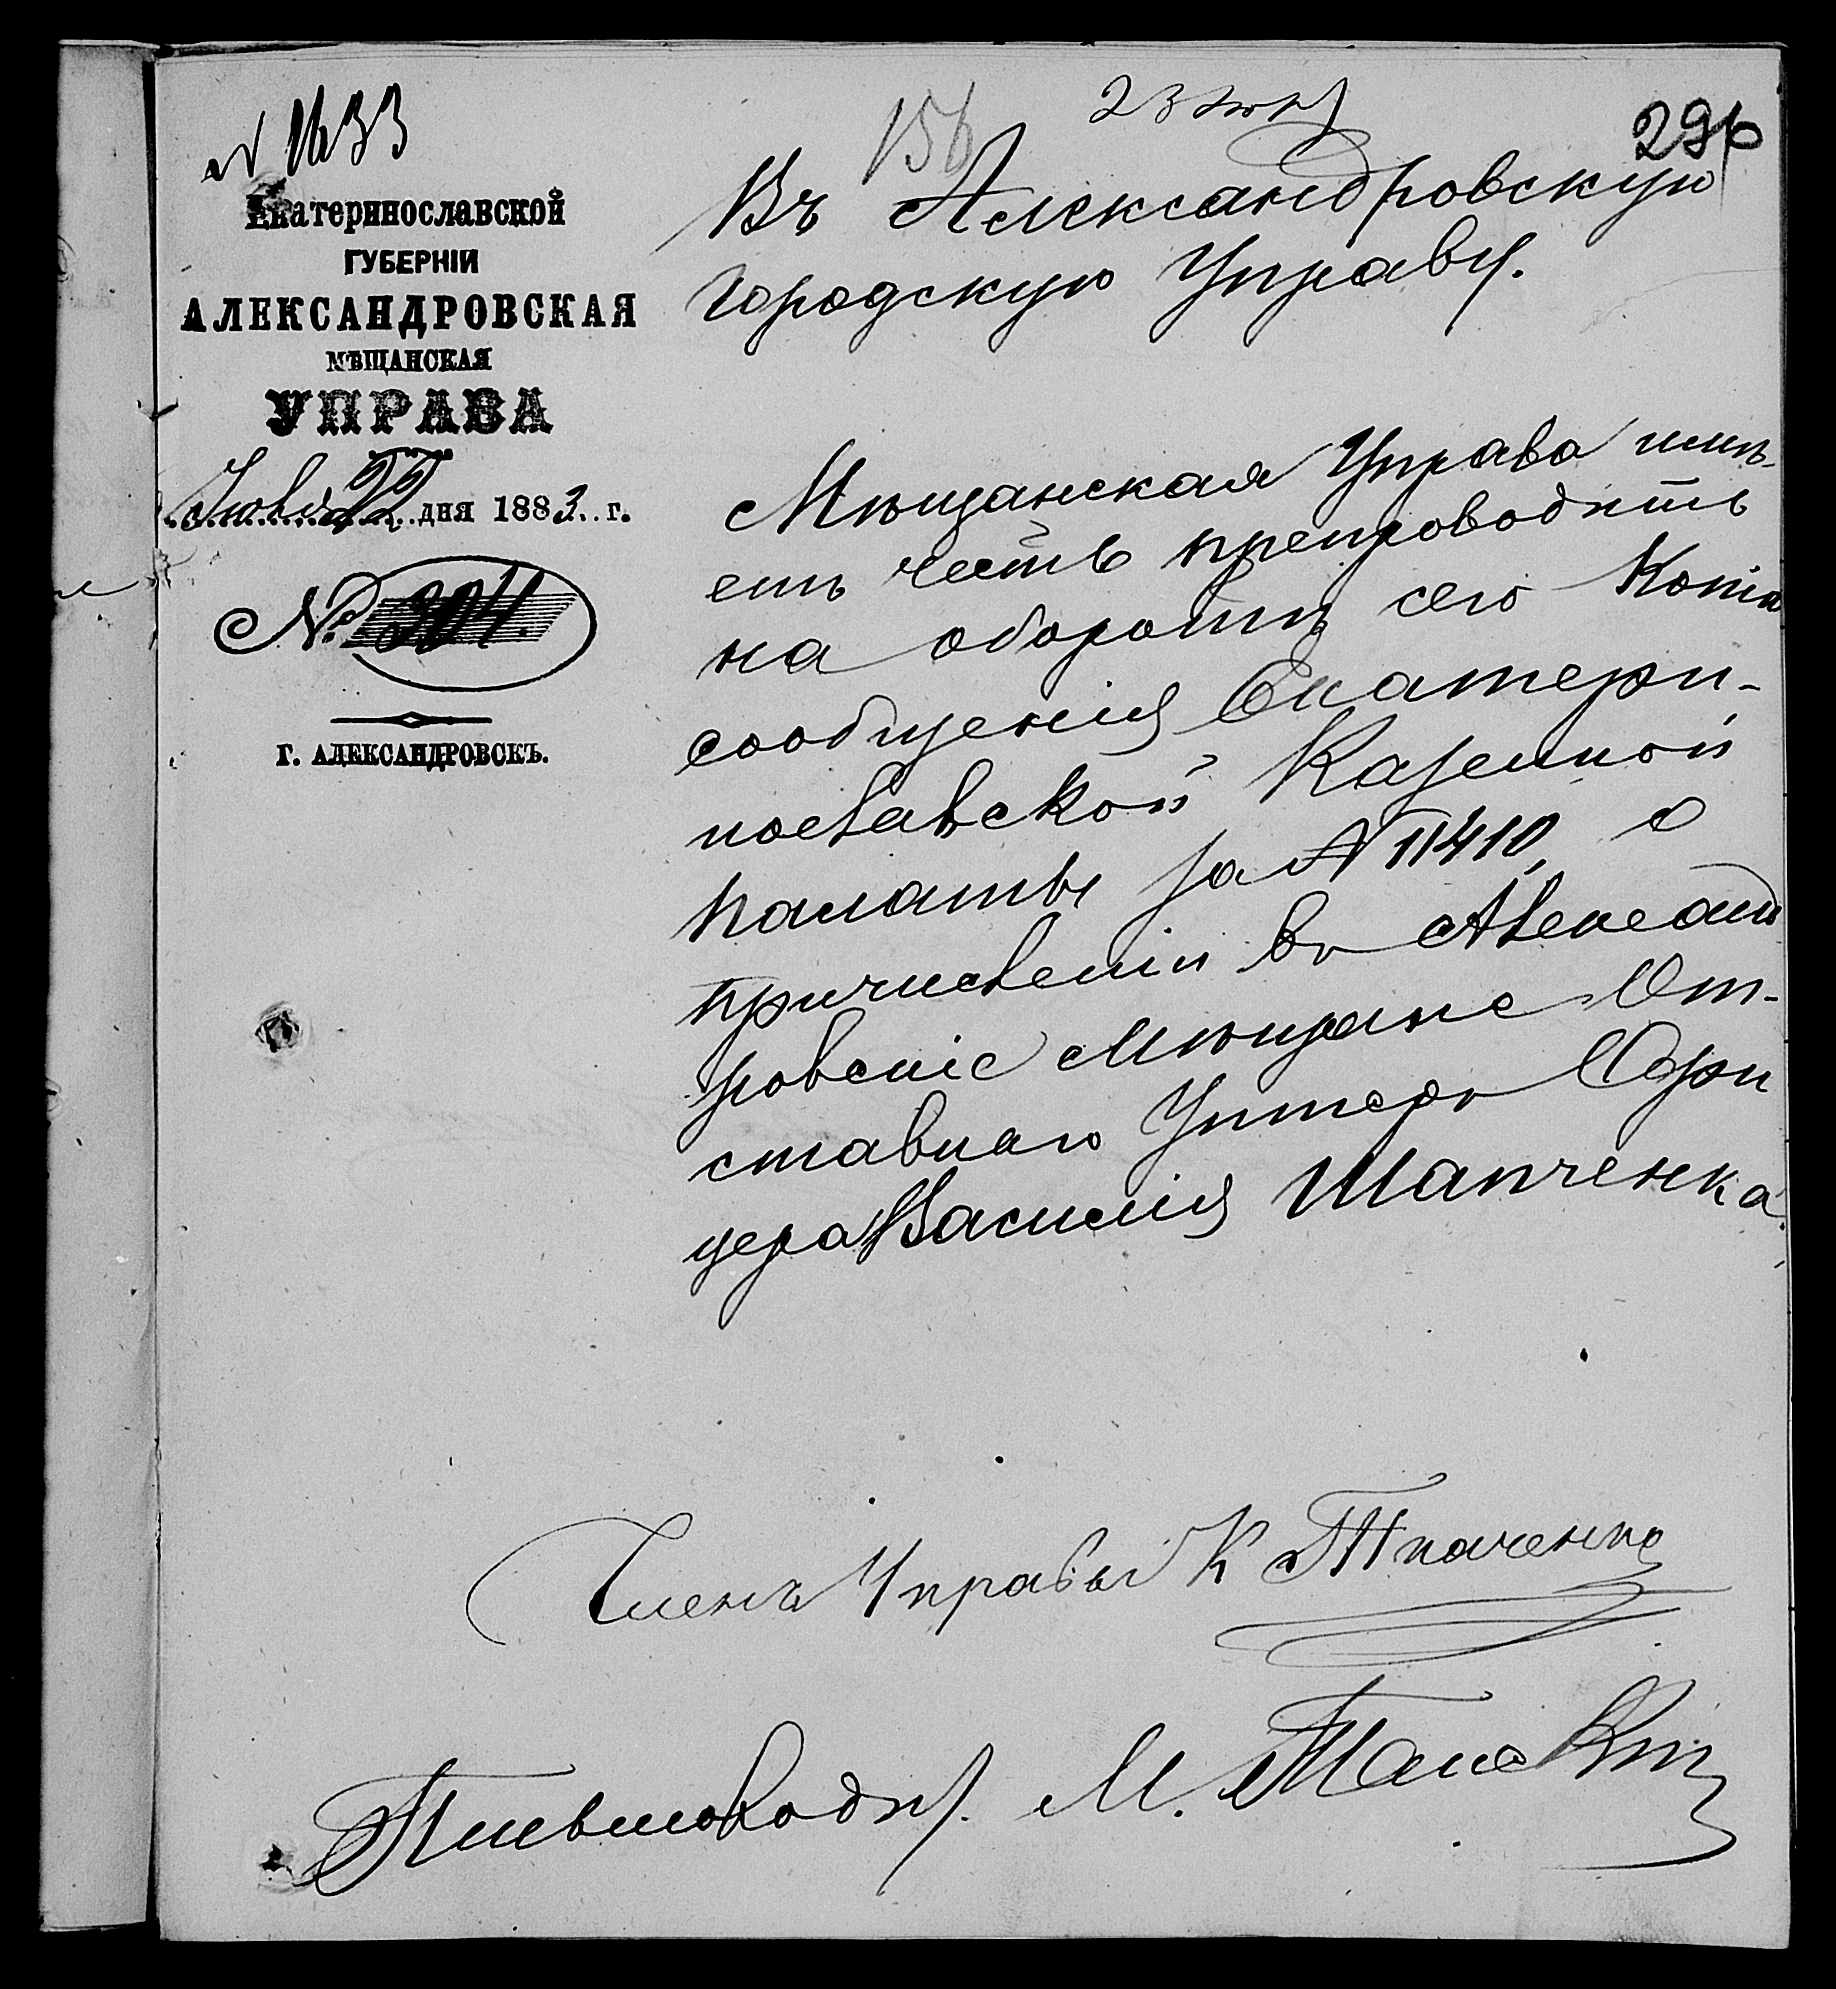 № 1633
156
23 июня
296
Екатеринославской
ГУБЕРНІИ
АЛЕКСАНДРОВСКАЯ
МѢЩАНСКАЯ
УПРАВА
Июня 22 дня 1883 г.
№ 304.
Г. АЛЕКСАНДРОВСКЪ.
Въ Александровскую
Городскую Управу.
Мѣщанская Управа имѣ-
етъ честь препроводить
на оборотѣ сего копію
сообщенія Екатери-
нославской Казенной
палаты за № 11410, о
причисленіи въ Александ
ровскіе мѣщане От-
ставнаго Унтеръ Офи
цера Василія Шапченка.
Членъ Управы К Ткаченко
Письмоводи. М.